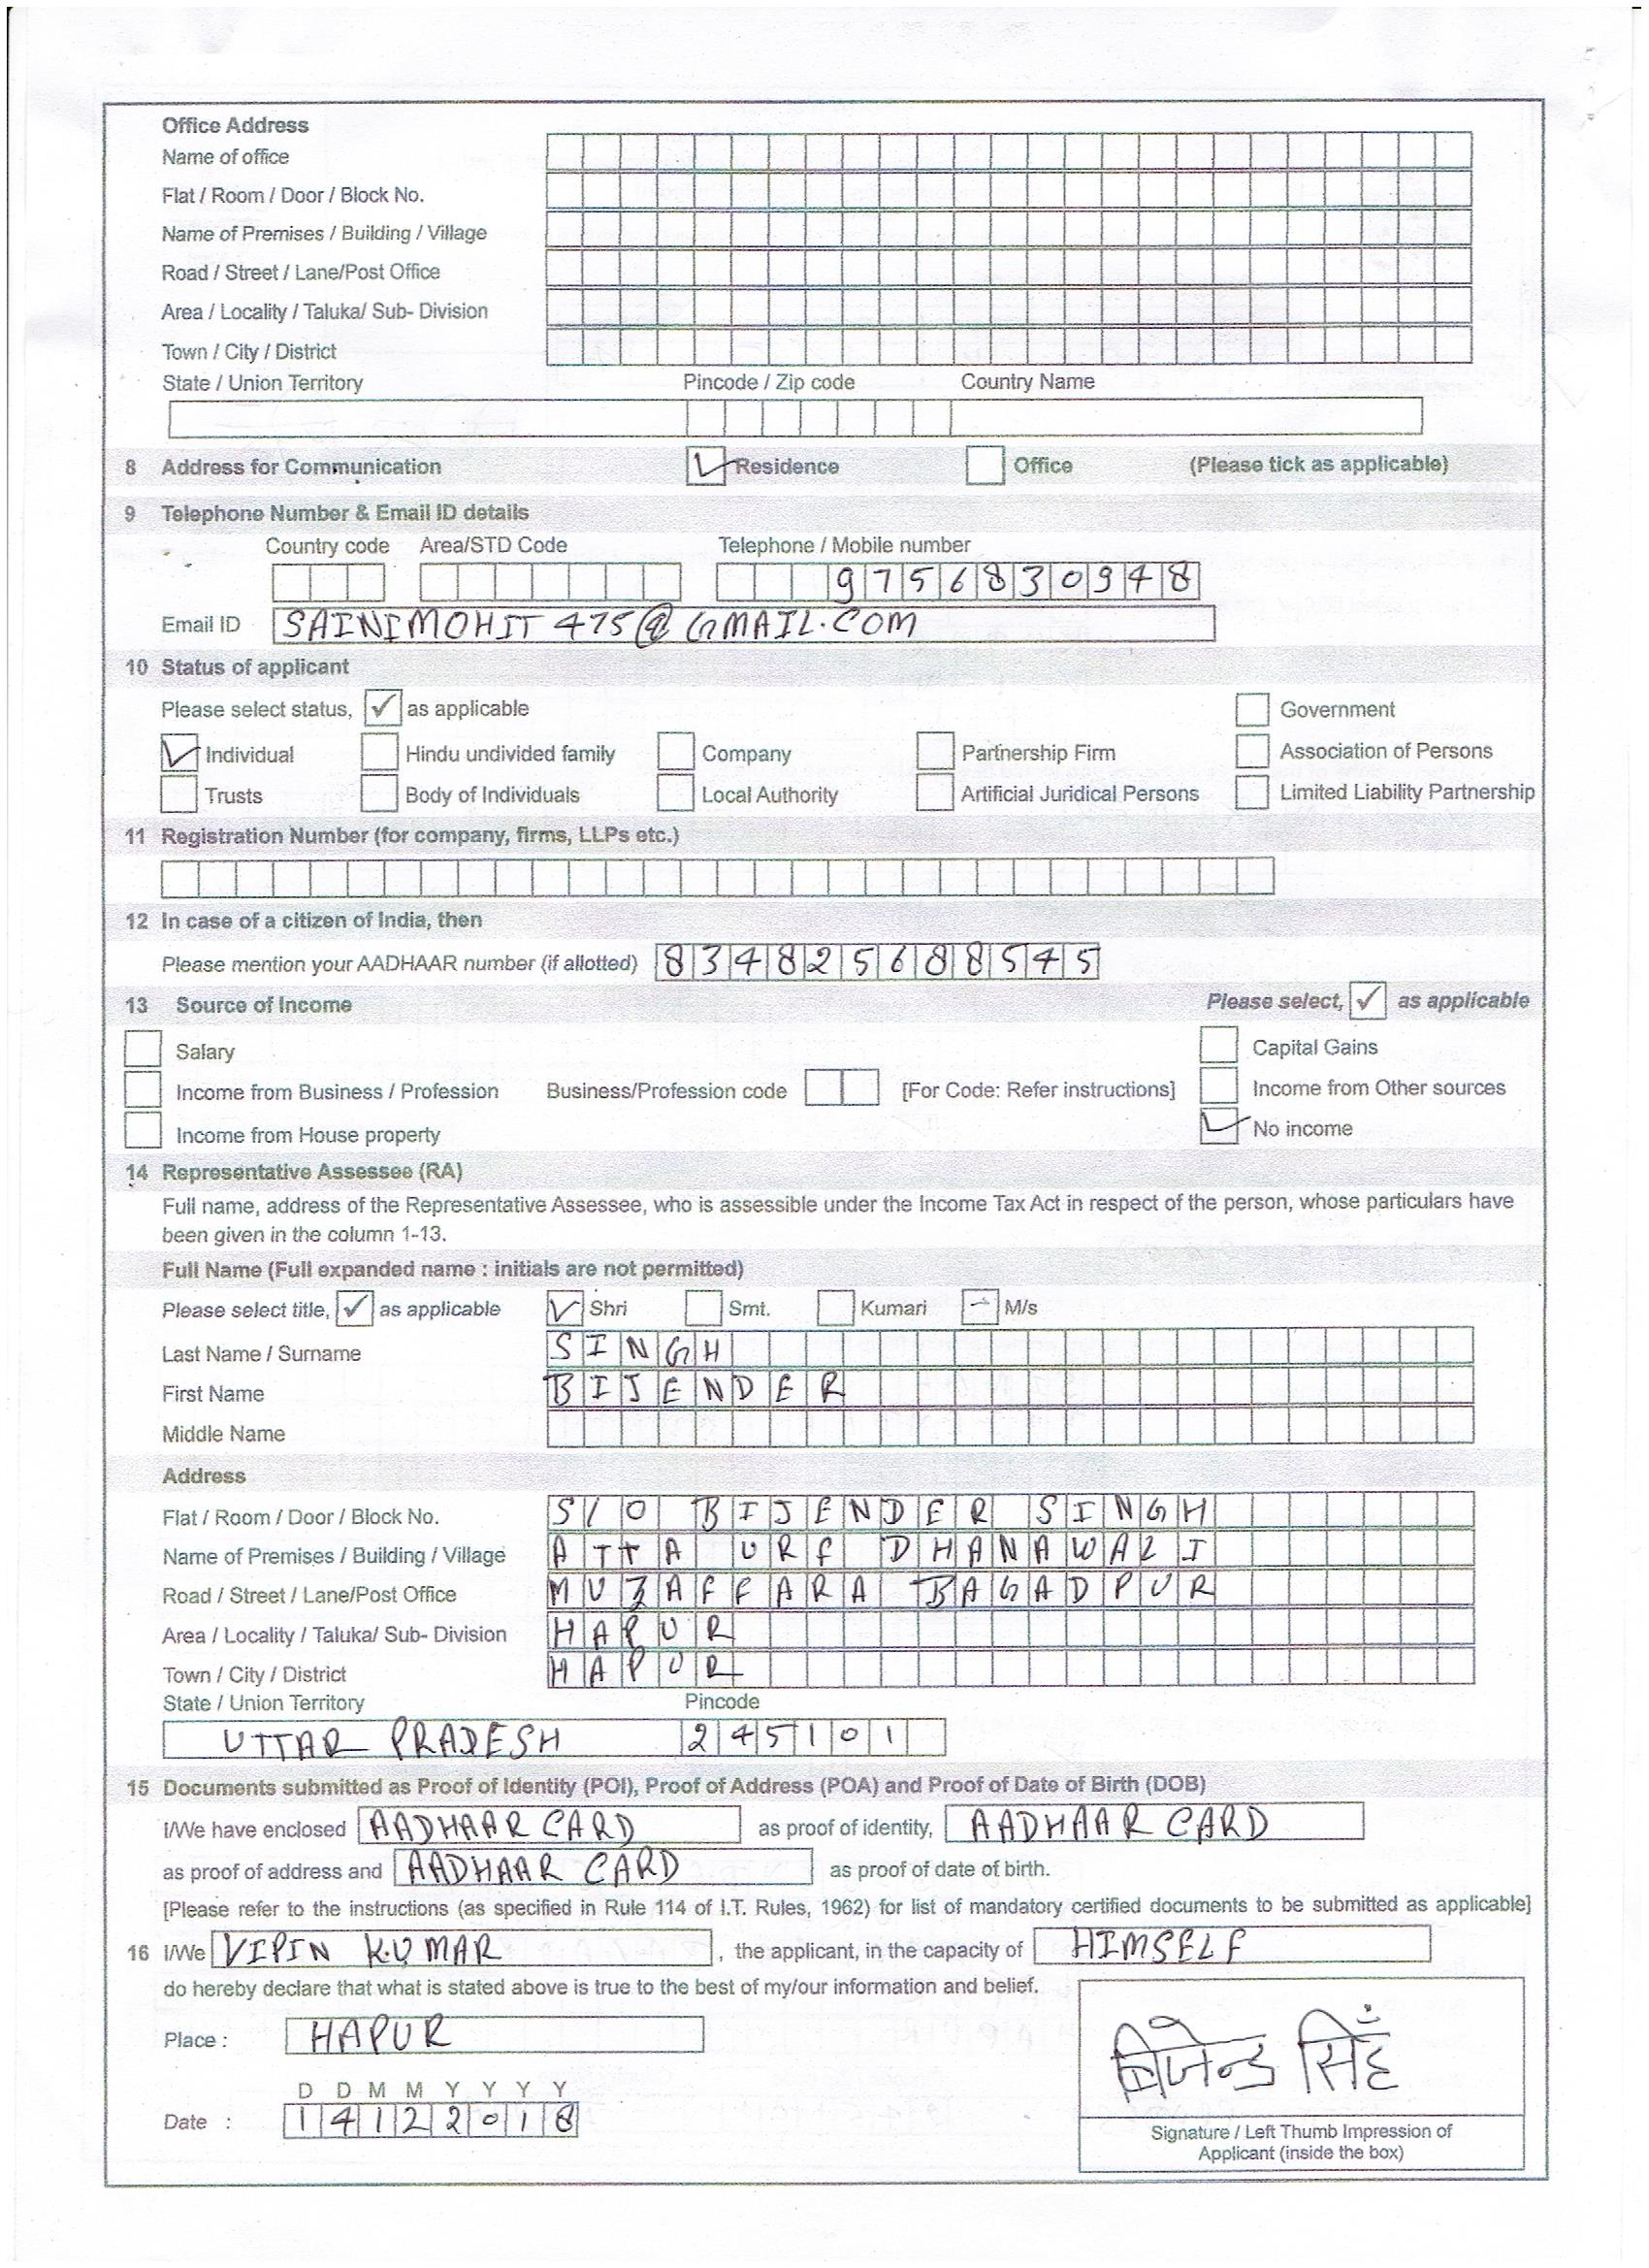 Office Address
Name of office
Flat / Room / Door / Block No.
Name of Premises / Building / Village
Road / Street / Lane/Post Office
Area / Locality / Taluka/ Sub- Division
Town / City / District
State / Union Territory Pincode / Zip code Country Name
8 Address for Communication Residence Office (Please tick as applicable)
9 Telephone Number & Email ID details
Country code Area/STD Code Telephone / Mobile number
9756830948
Email ID SAINIMOHIT475@GMAIL.COM
10 Status of applicant
Please select status, ✓ as applicable Government
Individual Hindu undivided family Company Partnership Firm Association of Persons
Trusts Body of Individuals Local Authority Artificial Juridical Persons Limited Liability Partnership
11 Registration Number (for company, firms, LLPs etc.)
12 In case of a citizen of India, then
Please mention your AADHAAR number (if allotted) 834825688545
13 Source of Income Please select, ✓ as applicable
Salary Capital Gains
Income from Business / Profession Business/Profession code [For Code: Refer instructions] Income from Other sources
Income from House property No income
14 Representative Assessee (RA)
Full name, address of the Representative Assessee, who is assessible under the Income Tax Act in respect of the person, whose particulars have
been given in the column 1-13.
Full Name (Full expanded name : initials are not permitted)
Please select title, ✓ as applicable Shri Smt. Kumari M/s
Last Name / Surname SINGH
First Name BIJENDER
Middle Name
Address
Flat / Room / Door / Block No. S/O BIJENDER SINGH
Name of Premises / Building / Village ATTA URF DHANAWALI
Road / Street / Lane/Post Office MUZAFFARA BAGADPUR
Area / Locality / Taluka/ Sub- Division HAPUR
Town / City / District HAPUR
State / Union Territory Pincode
UTTAR PRADESH 245101
15 Documents submitted as Proof of Identity (POI), Proof of Address (POA) and Proof of Date of Birth (DOB)
I/We have enclosed AADHAAR CARD as proof of identity, AADHAAR CARD
as proof of address and AADHAAR CARD as proof of date of birth.
[Please refer to the instructions (as specified in Rule 114 of I.T. Rules, 1962) for list of mandatory certified documents to be submitted as applicable]
16 I/We VIPIN KUMAR , the applicant, in the capacity of HIMSELF
do hereby declare that what is stated above is true to the best of my/our information and belief.
Place : HAPUR
बिजेन्ड सिंह
D D M M Y Y Y Y
Date : 14122018
Signature / Left Thumb Impression of
Applicant (inside the box)